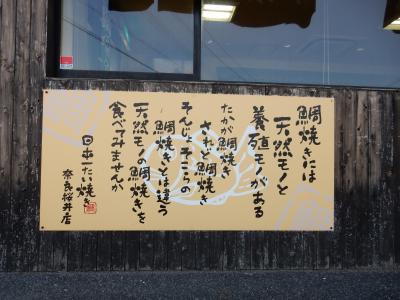 鯛焼きには
天然モノと
養殖モノがある
たかが鯛焼き
されど鯛焼き
そんじょそこらの
鯛焼きとは違う
天然モノの鯛焼きを
食べてみませんか
日本一たい焼き
奈良桜井店